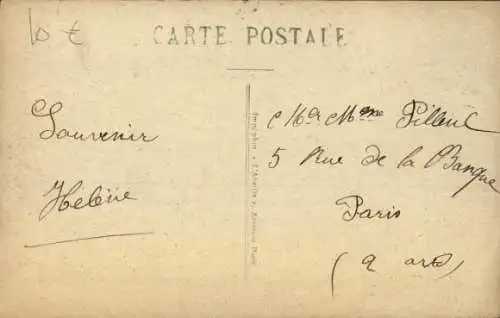 10 €
CARTE POSTALE
Souvenir
Helène
Mr Mme Pilleul
5 Rue de la Banque
Paris
(